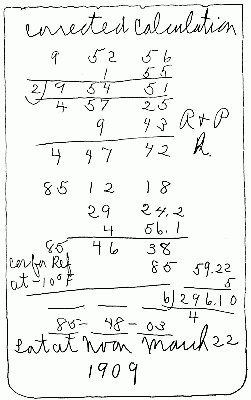 corrected calculation
9 52 56
1 55
2) 9 54 51
4 57 25
9 43 R & P
4 47 42 R.
85 12 18
29 24.2
4 56.1
85 46 38
cor for Ref 85 59.22
at -10° F 5
6) 296.10
4
85 - 48 - 03
Lat at noon March 22
1909